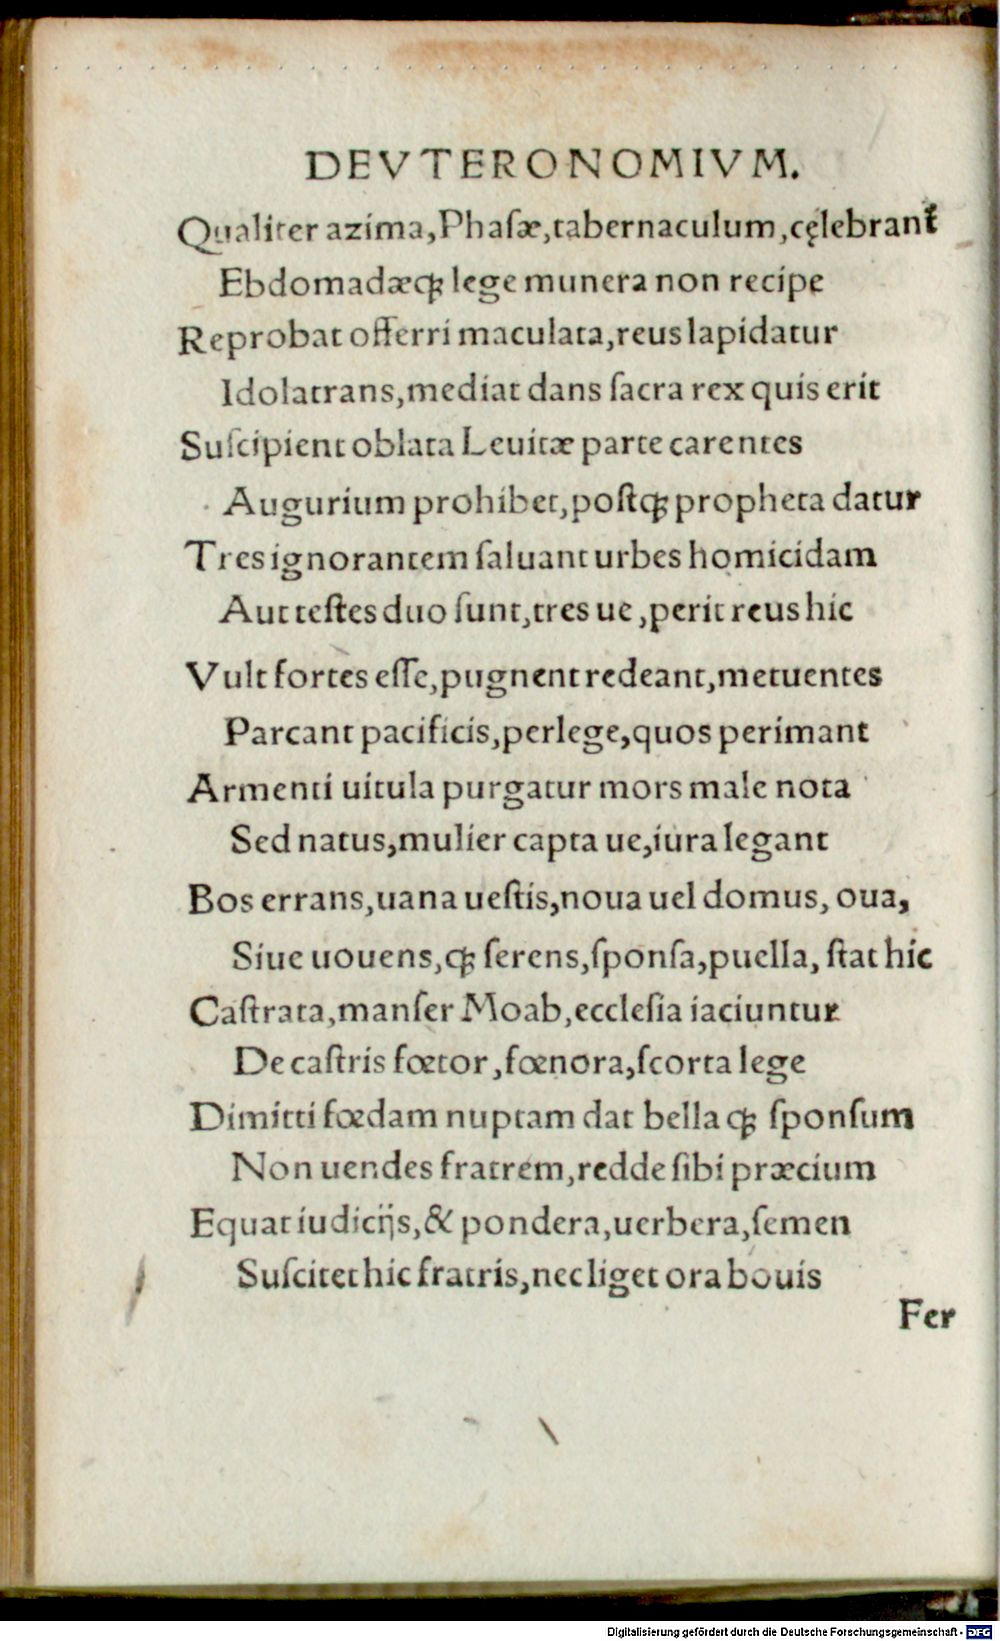 DEVTERONOMIVM.
Qualiter azima,Phaſæ,tabernaculum,cęlebrant
Ebdomadæq; lege munera non recipe
Reprobat offerri maculata,reus lapidatur
Idolatrans,mediat dans ſacra rex quis erit
Suſcipient oblata Leuitæ parte carentes
Augurium prohibet,poſtq; propheta datur
Tres ignorantem ſaluant urbes homicidam
Aut teſtes duo ſunt,tres ue ,perit reus hic
Vult fortes eſſe,pugnent redeant,metuentes
Parcant pacificis,perlege,quos perimant
Armenti uitula purgatur mors male nota
Sed natus,mulier capta ue,iura legant
Bos errans,uana ueſtis,noua uel domus, oua,
Siue uouens,q; ſerens,ſponſa,puella, ſtat hic
Caſtrata,manſer Moab,eccleſia iaciuntur
De caſtris fœtor ,fœnora,ſcorta lege
Dimitti fœdam nuptam dat bella q; ſponſum
Non uendes fratrem,redde ſibi præcium
Equat iudicijs,& pondera,uerbera,ſemen
Suſcitet hic fratris,nec liget ora bouis
Fer
Digitalisierung gefördert durch die Deutsche Forschungsgemeinschaft - DFG